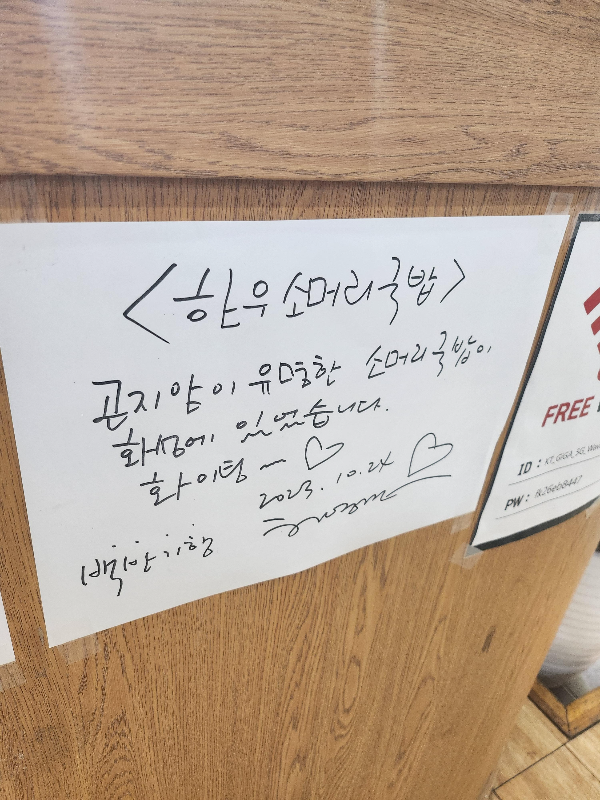 <한우 소머리국밥>
곤지암이 유명한 소머리국밥이
화성에 있었습니다.
화이팅~ ♡
2023. 10. 24 ♡
백반기행
FREE
ID : KT_GIGA_5G_Wave
PW : fk26eb8447